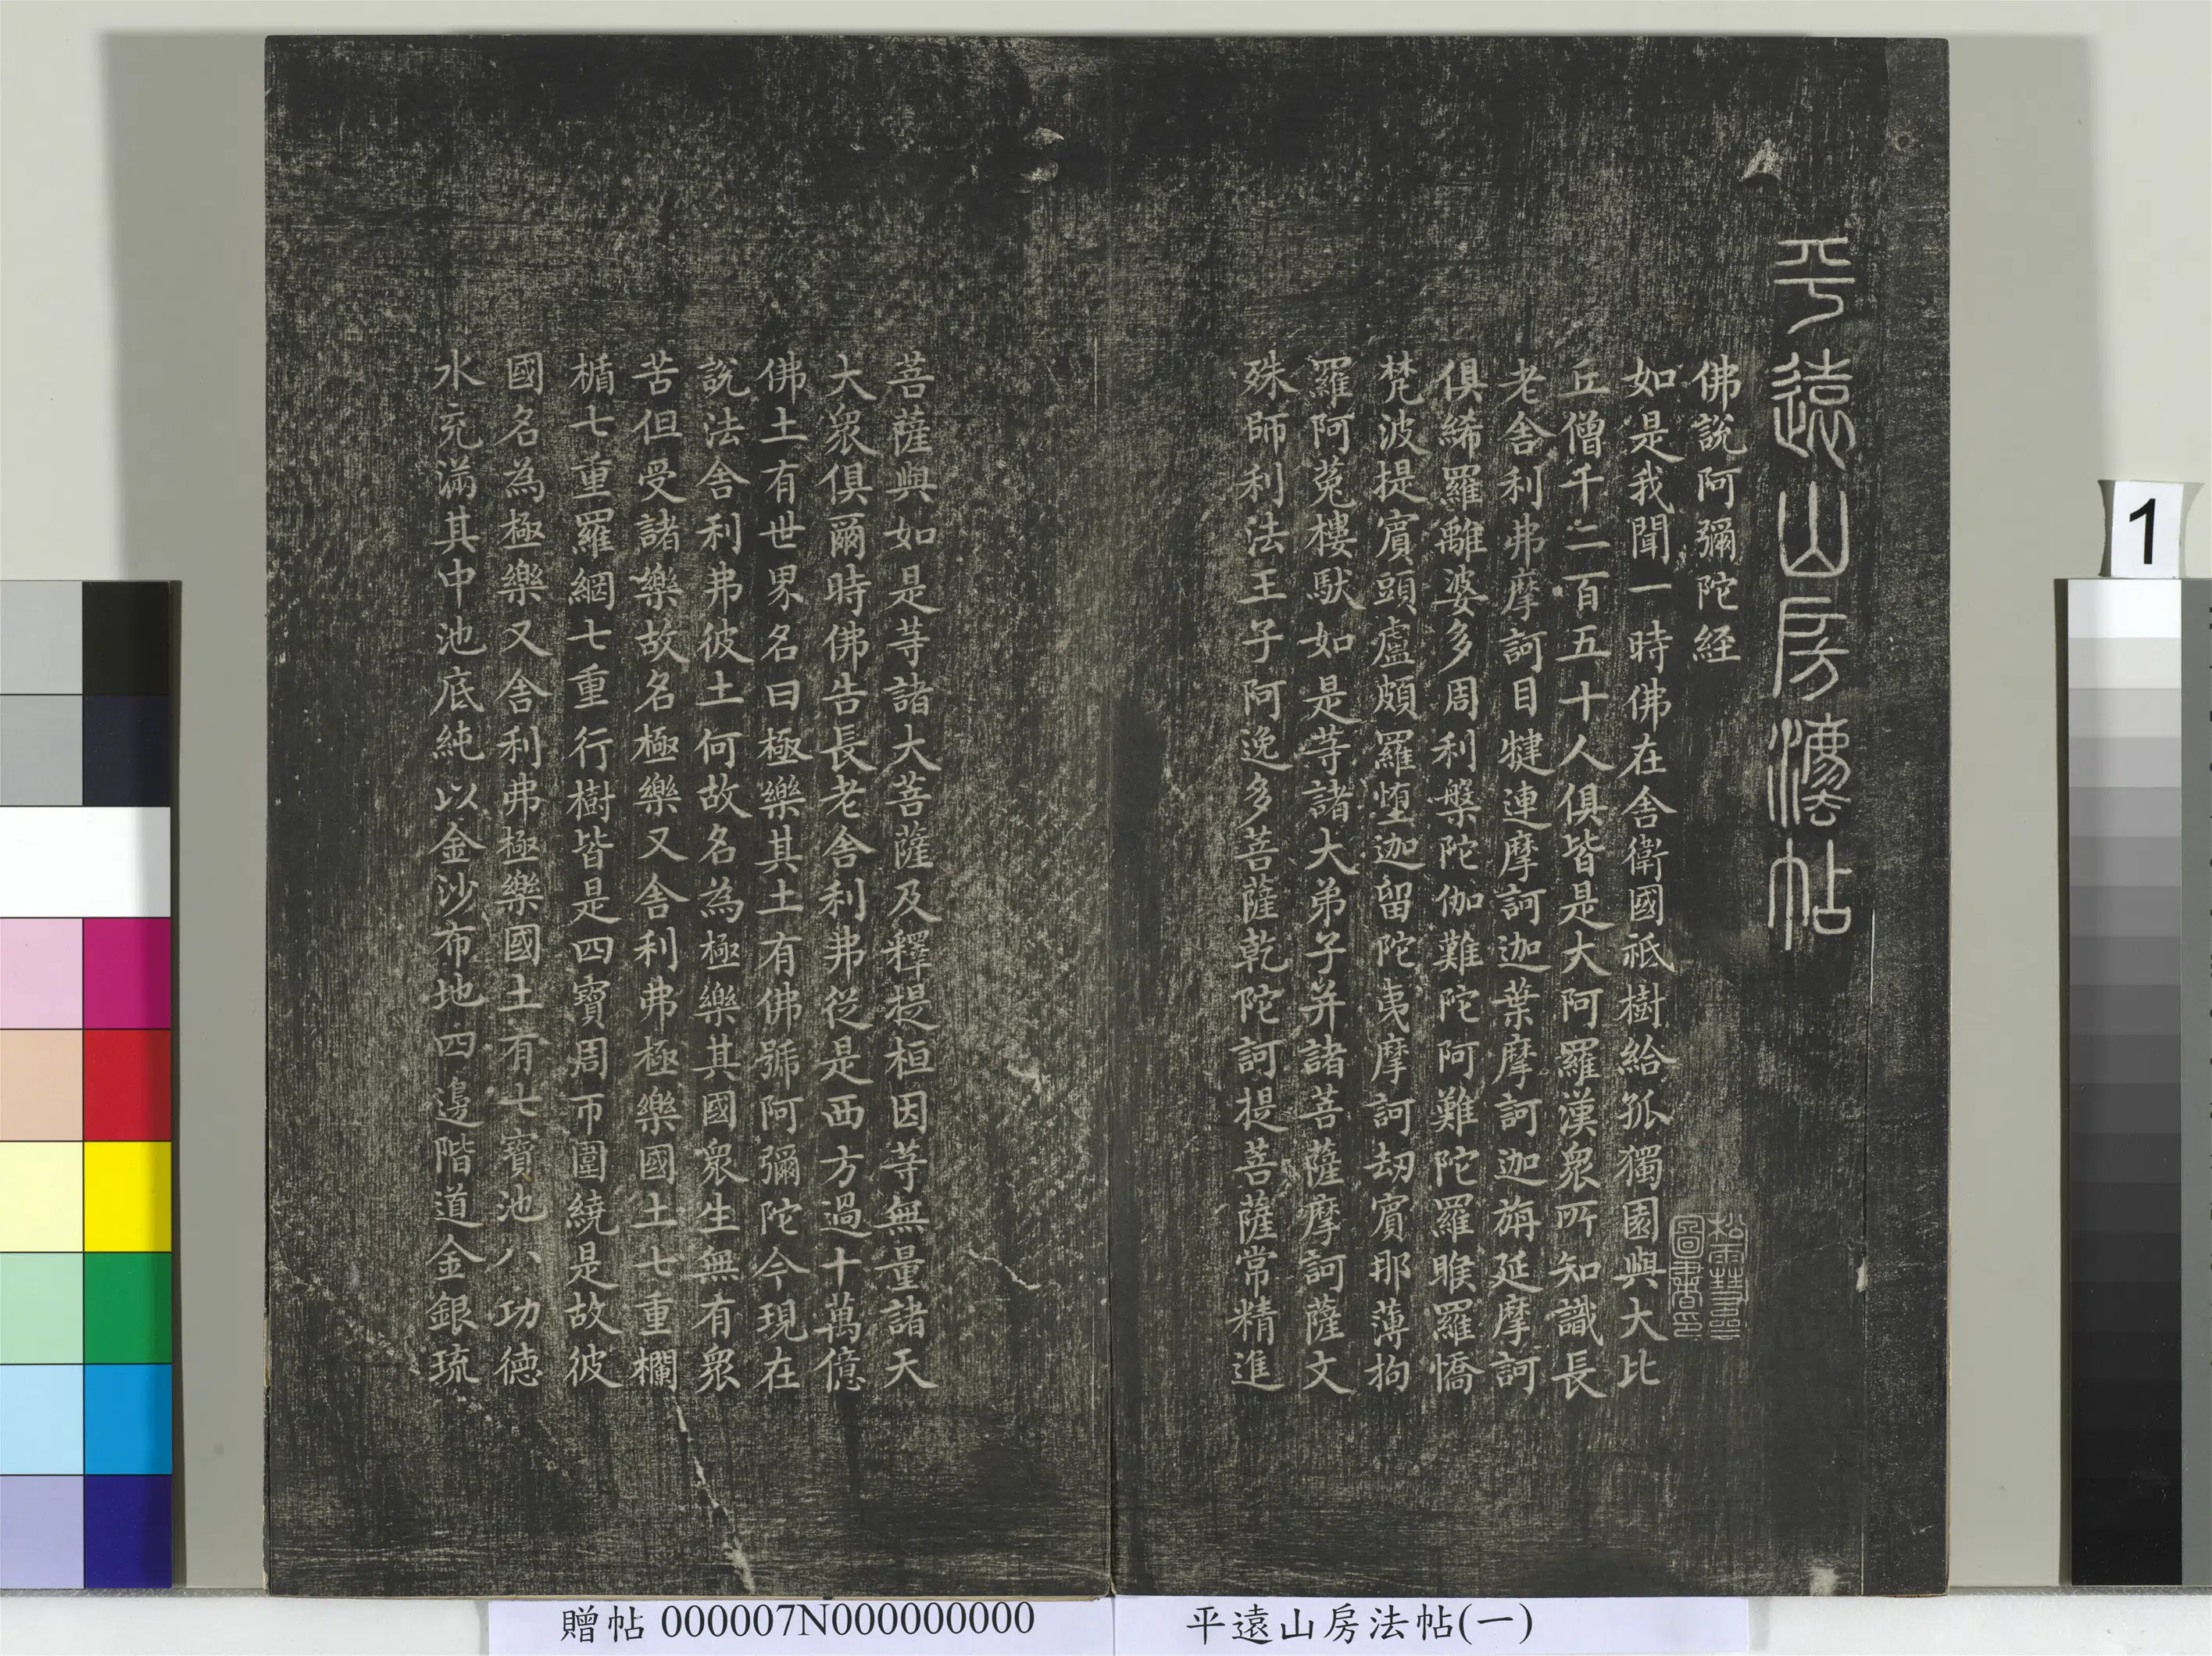 平遠山房灋帖
佛說阿彌陀経
如是我聞一時佛在舍衛國祇樹給孤獨園與大比
丘僧千二百五十人俱皆是大阿羅漢衆所知識長
老舍利弗摩訶目犍連摩訶迦葉摩訶迦旃延摩訶
俱絺羅離婆多周利槃陀伽難陀阿難陀羅睺羅憍
梵波提賓頭盧頗羅堕迦留陀夷摩訶劫賓那薄拘
羅阿㝹樓馱如是等諸大弟子并諸菩薩摩訶薩文
殊師利法王子阿逸多菩薩乾陀訶提菩薩常精進
菩薩與如是等諸大菩薩及釋提桓因等無量諸天
大衆俱爾時佛告長老舍利弗從是西方過十萬億
佛土有世界名曰極樂其土有佛號阿彌陀今現在
說法舍利弗彼土何故名為極樂其國衆生無有衆
苦但受諸樂故名極樂又舍利弗極樂國土七重欄
楯七重羅網七重行樹皆是四寶周帀圍繞是故彼
國名為極樂又舍利弗極樂國土有七寶池八功徳
水充滿其中池底純以金沙布地四邊階道金銀琉
1
贈帖 000007N000000000
平遠山房法帖(一)